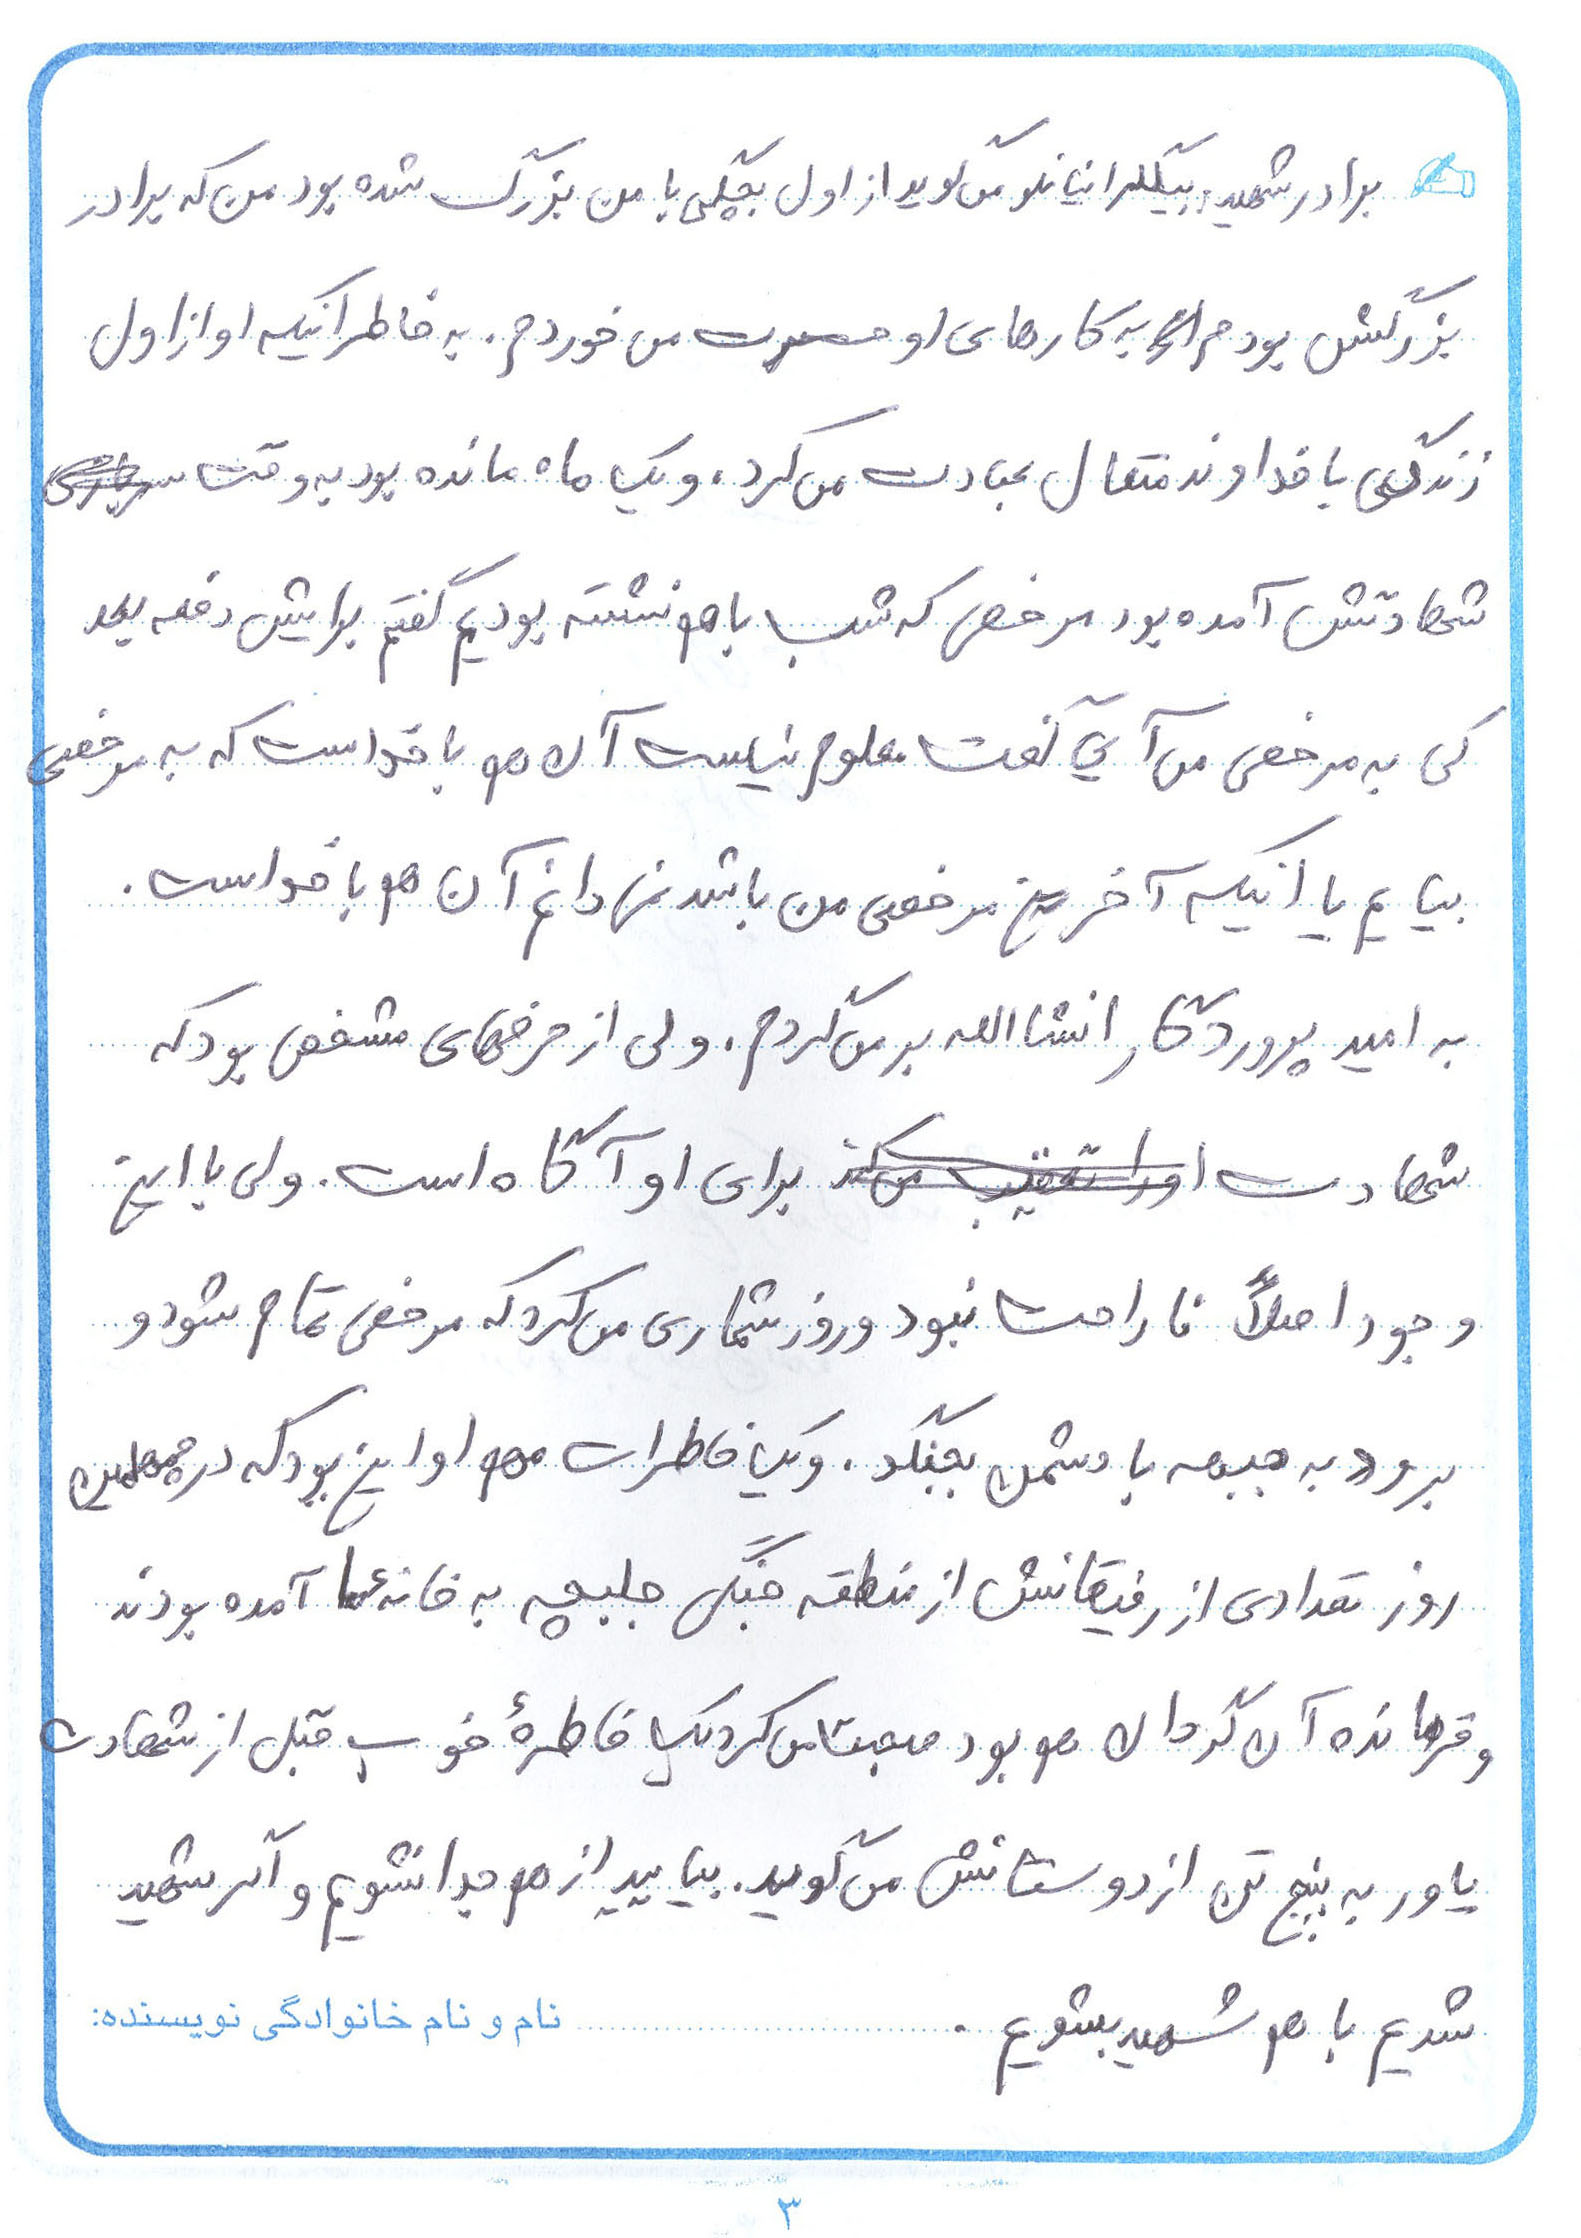 برادر شهید: می‌گوید از اول بچگی با من بزرگ شده بود من که برادر
بزرگش بودم به کارهای او حسرت می خوردم. به خاطر اینکه او از اول
زندگی با خداوند متعال عبادت می کرد. و یک ماه مانده بود به وقت
شهادتش آمده بود مرخصی که شب با هم نشسته بودیم گفتم برایش دفعه بعد
کی به مرخصی می آیی گفت معلوم نیاست آن هم با خداست که به مرخصی
بیایم یا اینکه آخرین مرخصی من باشد نمی دانم آن هم با خداست.
به امید پروردگار انشاالله بر می گردم. ولی از حرفهای مشخص بود که
شهادت برای او آگاه است. ولی با این
وجود اصلاً ناراحت نبود و روز شماری می کرد که مرخصی تمام شود و
برود به جبهه با دشمن بجنگد. و یک خاطرات مهم او این بود که در همین
روز تعدادی از رفیقانش از منطقه جنگی حلبچه به خانه ما آمده بودند
و فرمانده آن گردان هم بود صحبت می کرد یک خاطرهٔ خوب قبل از شهادت
یاور به پنج تن از دوستانش می گوید. بیایید از هم جدا نشویم و اگر شهید
شدیم با هم شهید بشویم.
نام و نام خانوادگی نویسنده:
۳